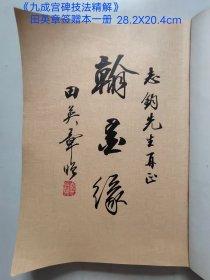 《九成宫碑技法精解》
田英章签赠本一册 28.2X20.4cm
志钧先生再正
翰墨缘
田英章